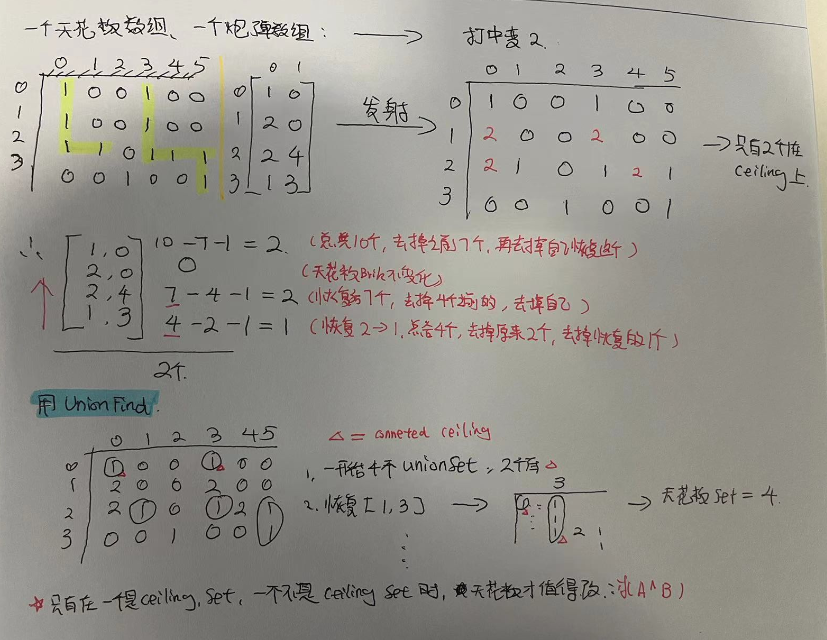 一个天花板数组、一个炮弹数组: → 打中变 2.
0 1 2 3 4 5
0 1 0 0 1 0 0
1 1 0 0 1 0 0
2 1 1 0 1 1 1
3 0 0 1 0 0 1
0 1
0 1 0
1 2 0
2 2 4
3 1 3
发射 →
0 1 2 3 4 5
0 1 0 0 1 0 0
1 2 0 0 2 0 0
2 2 1 0 1 2 1
3 0 0 1 0 0 1
→ 只有2个在
ceiling 上.
∴ 1, 0 10 - 7 - 1 = 2. (总共10个, 去掉之前7个, 再去掉自己恢复这个)
2, 0 0 (天花板Brick不变化)
2, 4 7 - 4 - 1 = 2 (恢复7个, 去掉4个之前的, 去掉自己)
1, 3 4 - 2 - 1 = 1 (恢复 2→1, 总合4个, 去掉原来2个, 去掉恢复的1个)
2个.
用 Union Find.
0 1 2 3 4 5
0 1 0 0 1 0 0
1 2 0 0 2 0 0
2 2 1 0 1 2 1
3 0 0 1 0 0 1
△ = conneted ceiling
1. 一开始4个 union set, 2个有 △
2. 恢复 [1, 3] → 3 2 → 天花板 set = 4.
☆ 只有在一个是 ceiling set, 一个不是 ceiling set 时, 天花板才值得改 ∴ (A ^ B)